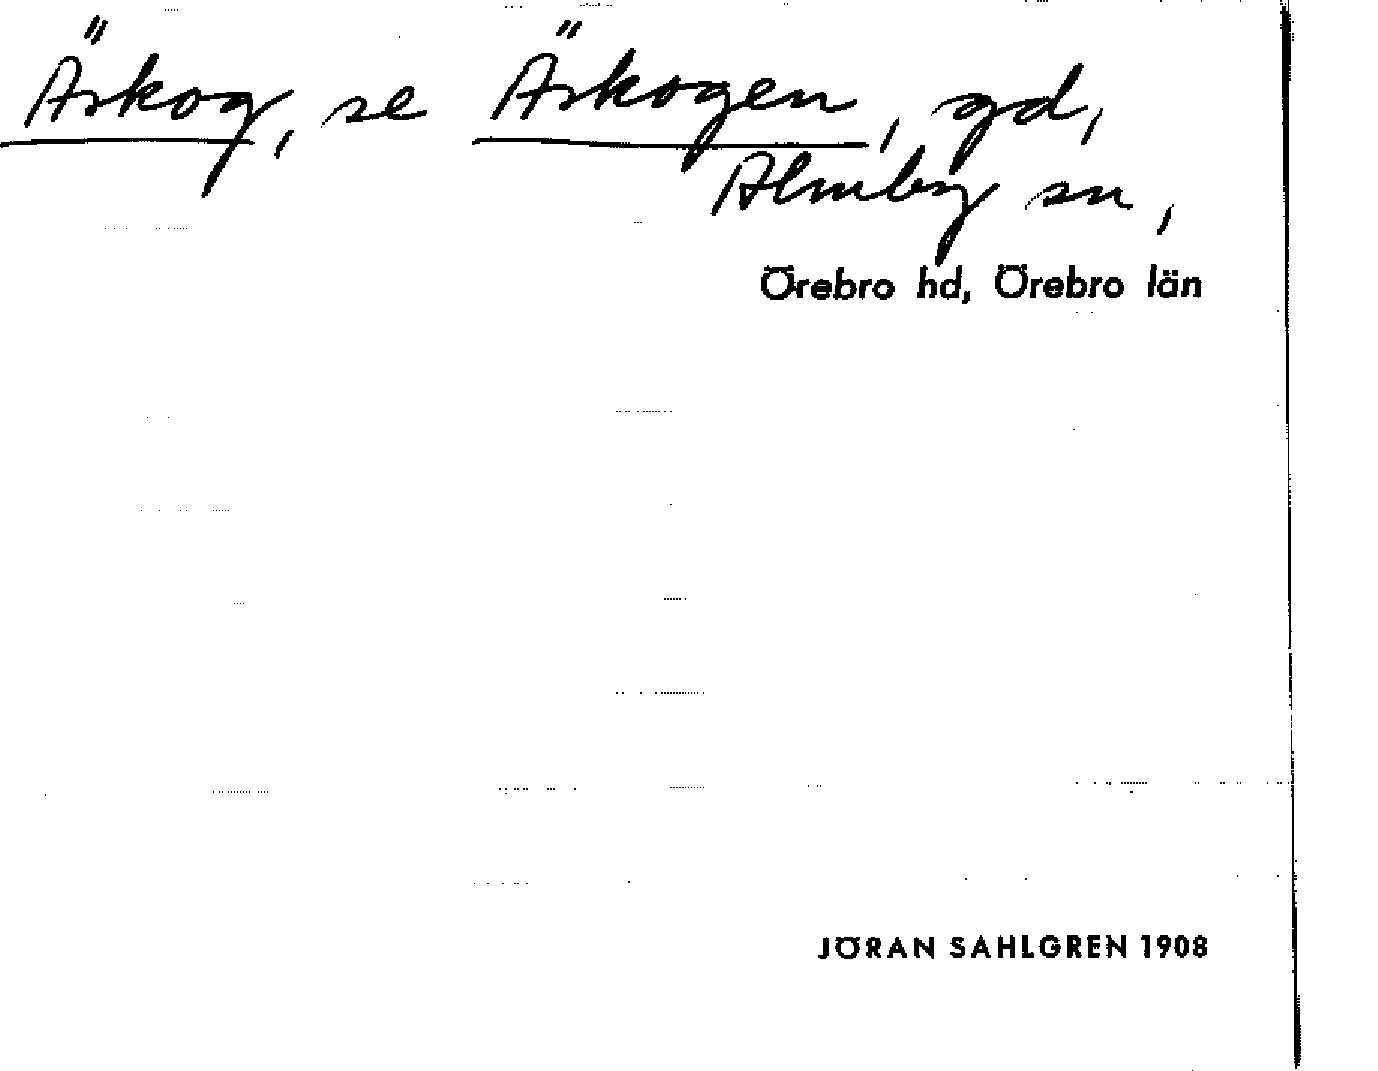 Äskog, se Äskogen, gd,
Almby sn,
Örebro hd, Örebro län
JÖRAN SAHLGREN 1908